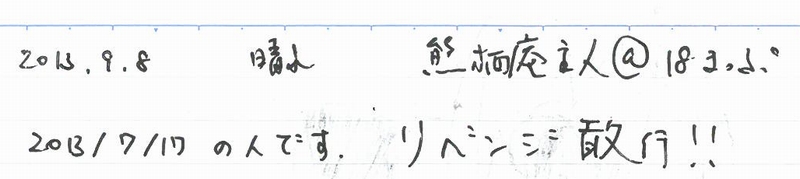 2013.9.8 晴れ 熊栖庵主人@18きっぷ
2013/7/17の人です. リベンジ敢行!!